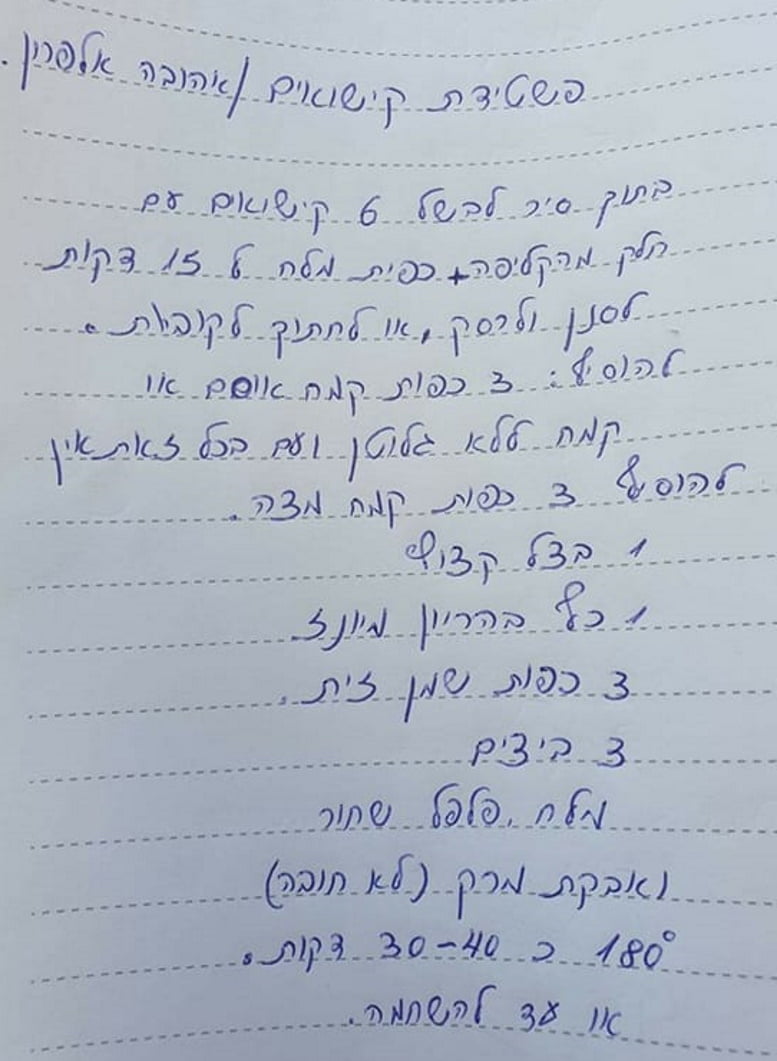 פשטידת קישואים / אהובה אלפרון.
בתוך סיר לבשל 6 קישואים עם
חלק מהקליפה + כפית מלח ל 15 דקות
לסנן ולרסק, או לחתוך לקוביות.
להוסיף: 3 כפות קמח אוסם או
קמח ללא גלוטן ועם בכל זאת אין
להוסיף 3 כפות קמח מצה.
1 בצל קצוף
1 כף בהריון מיונז
3 כפות שמן זית.
3 ביצים
מלח, פלפל שחור
ואבקת מרק (לא חובה)
180° כ 30-40 דקות.
או עד להשחמה.